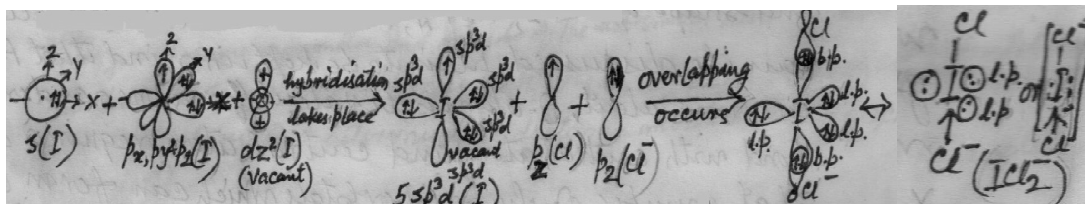 Z
Y
X
+
s(I)
Z
Y
X
+
px, py, pz(I)
dz²(I)
(vacant)
hybridisation
takes place
sp³d
sp³d
sp³d
sp³d
vacant
sp³d
5 sp³d (I)
+
pz(Cl)
+
pz(Cl⁻)
overlapping
occurs
Cl
b.p.
l.p.
I
l.p.
l.p.
b.p.
Cl⁻
Cl
I
l.p.
l.p.
Cl⁻
or
Cl
I
Cl
(ICl₂⁻)